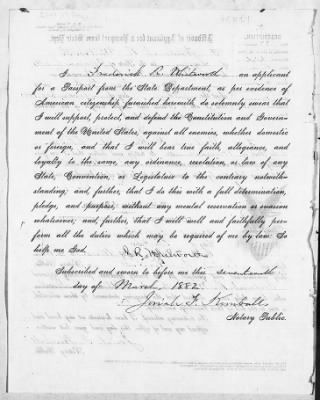 I Frederick R. Wentworth an applicant
for a Passport from the State Department, as per evidence of
American citizenship furnished herewith, do solemnly swear that
I will support, protect, and defend the Constitution and Govern-
ment of the United States, against all enemies, whether domestic
or foreign, and that I will bear true faith, allegiance, and
loyalty to the same, any ordinance, resolution, or law of any
State, Convention, or Legislature to the contrary notwith-
standing; and, further, that I do this with a full determination,
pledge, and purpose, without any mental reservation or evasion
whatsoever; and, further, that I will well and faithfully per-
form all the duties which may be required of me by law: So
help me God.
F. R. Wentworth
Subscribed and sworn to before me this seventeenth
day of March, 1882.
Josiah F. Kimball
Notary Public.